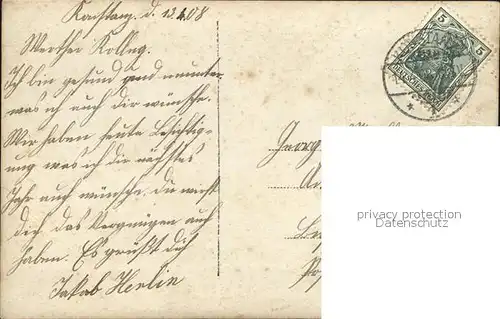 Konstanz. d. 13.4.08
Werther Kolleg.
Ich bin gesund und munter
was ich auch dir wünsche.
Wir haben heute Besichtig-
ung was ich die nächstes
Jahr auch wünsche. die wirst
dich das Vergnügen auch
haben. Es grüßt dich
Jakob Herlin
5 5
Georg
privacy protection
Datenschutz